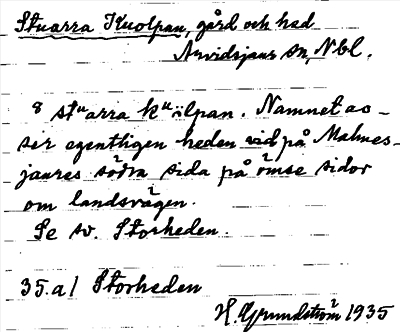 Stuorra Kuolpan, gård och hed
Arvidsjaurs sn, Nbl.
8 stᵘarra kᵘälpan. Namnet av-
ser egentligen heden vid på Malmes-
jaures södra sida på ömse sidor
om landsvägen.
Se sv. Storheden.
35.a/ Storheden
H. Grundström 1935